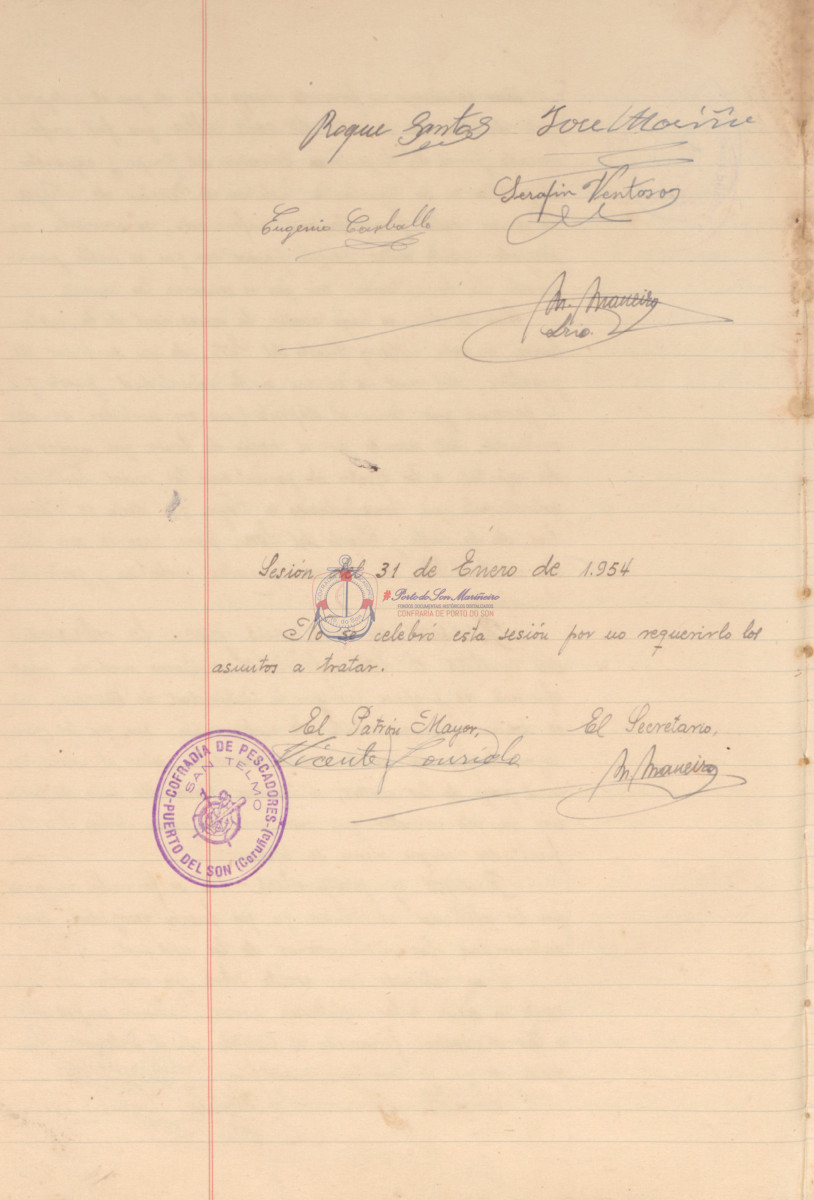 Roque Santos
Serafin Ventoso
Eugenio Carballo
M. Maneiro
Srio.
Sesión del 31 de Enero de 1.954
#Porto do Son Mariñeiro
FONDOS DOCUMENTAIS HISTÓRICOS DIXITALIZADOS
CONFRARÍA DE PORTO DO SON
No se celebró esta sesión por no requerirlo los
asuntos a tratar.
El Patrón Mayor, El Secretario,
Vicente
M. Maneiro
COFRADÍA DE PESCADORES
SAN TELMO
PUERTO DEL SON (Coruña)